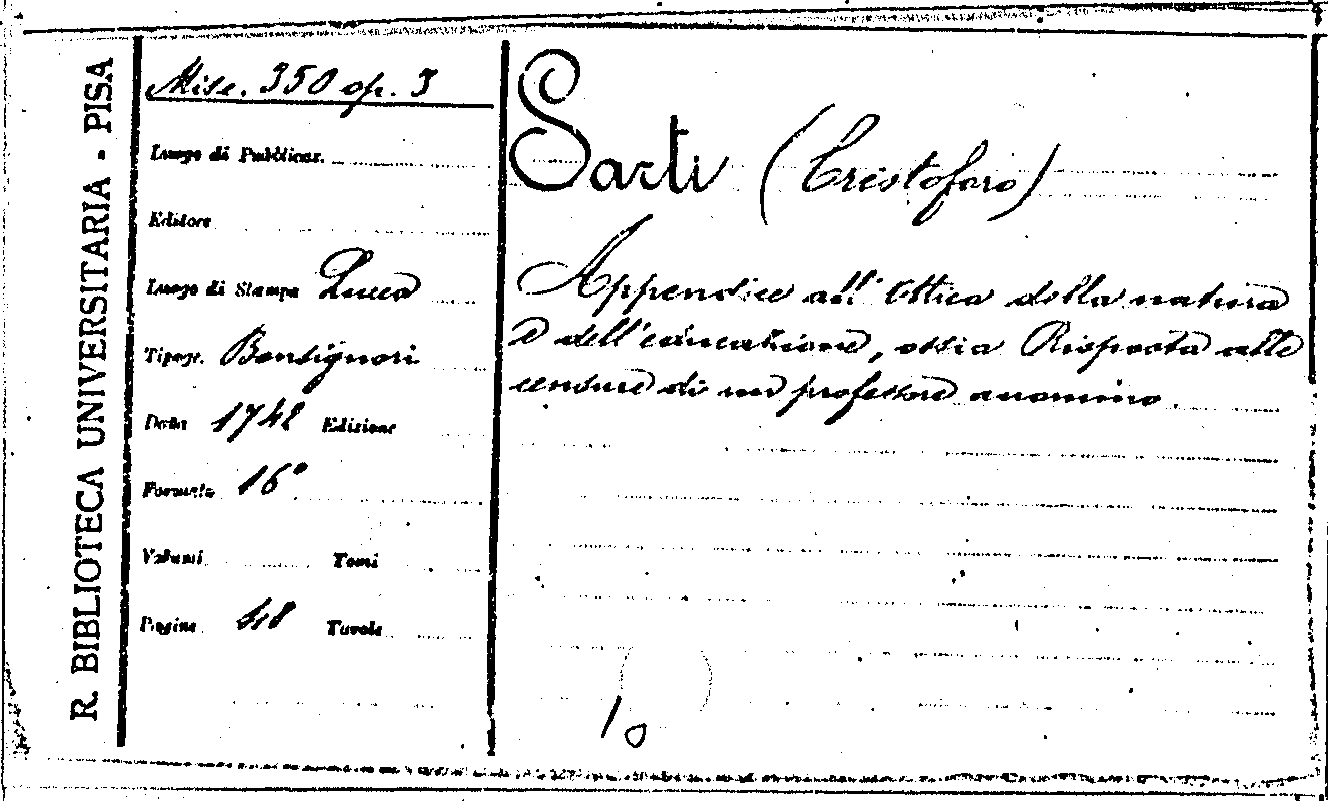 R. BIBLIOTECA UNIVERSITARIA - PISA
Misc. 350 op. 3
Luogo di Pubblicaz.
Editore
Luogo di Stampa Lucca
Tipogr. Bonsignori
Data 1742 Edizione
Formato 16°
Volumi Tomi
Pagine 48 Tavole
Sarti (Cristoforo)
Appendice all'Ottica della natura
e dell'educazione, ossia Risposta alle
censure di un professore anonimo.
10